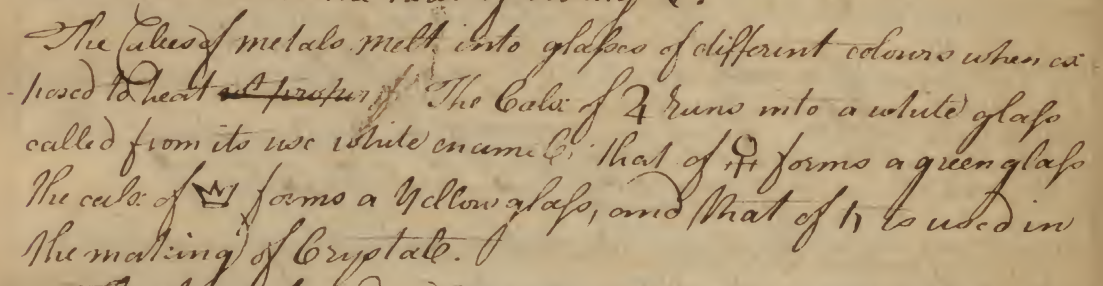 The Calces of metals melt into glaſses of different colours when ex
-posed to heat. The Calx of ♃ runs into a white glaſs
called from its use white enamel; that of ♀ forms a green glaſs
the calx of 👑 forms a Yellow glaſs, and that of ♄ is used in
the making of Crystals.